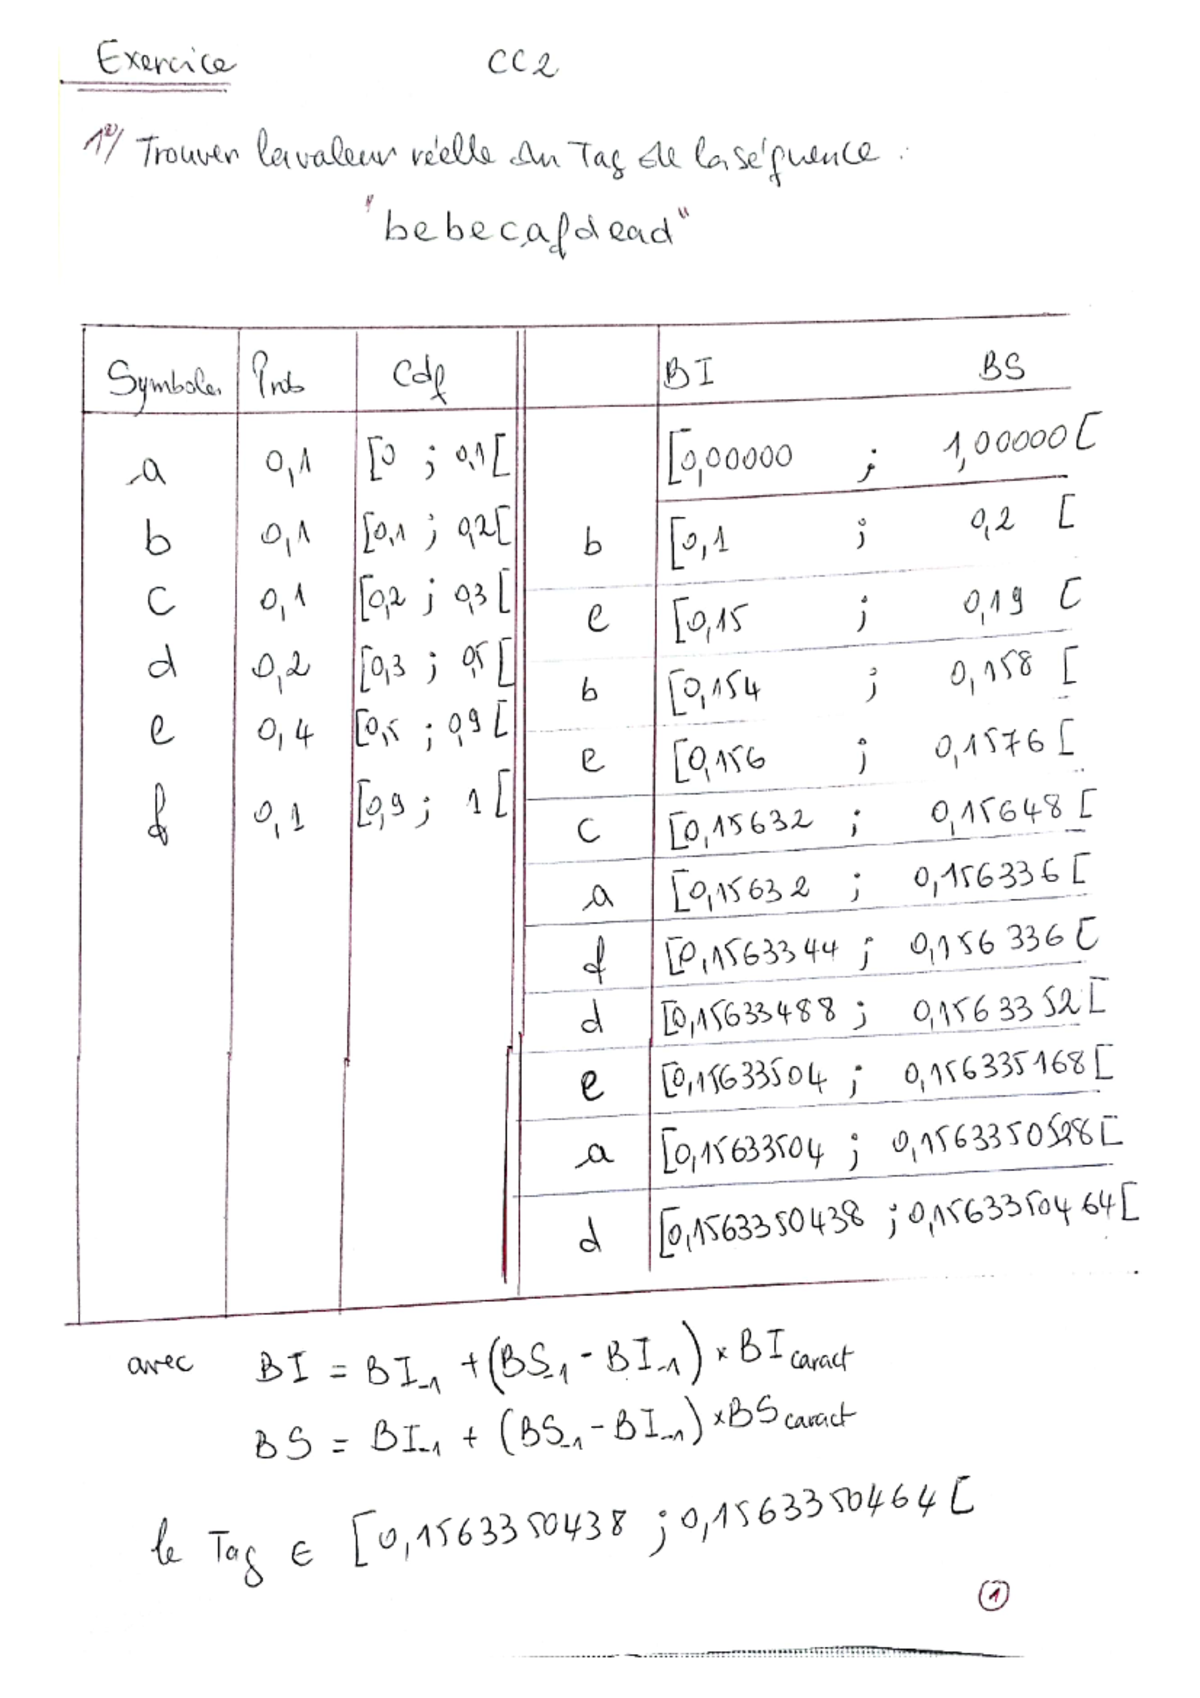 Exercice CC2
1°/ Trouver la valeur réelle du Tag de la séquence :
"bebecafdead"
Symboles Prob Cdf BI BS
a 0,1 [0 ; 0,1[ [0,00000 ; 1,00000[
b 0,1 [0,1 ; 0,2[ b [0,1 ; 0,2 [
c 0,1 [0,2 ; 0,3[ e [0,15 ; 0,19 [
d 0,2 [0,3 ; 0,5[ b [0,154 ; 0,158 [
e 0,4 [0,5 ; 0,9[ e [0,156 ; 0,1576 [
f 0,1 [0,9 ; 1[ c [0,15632 ; 0,15648 [
a [0,15632 ; 0,156336 [
f [0,1563344 ; 0,156336 [
d [0,15633488 ; 0,1563352 [
e [0,15633504 ; 0,156335168 [
a [0,15633504 ; 0,1563350528 [
d [0,1563350438 ; 0,1563350464 [
avec BI = BI-1 + (BS-1 - BI-1) × BI caract
BS = BI-1 + (BS-1 - BI-1) × BS caract
le Tag ∈ [0,1563350438 ; 0,1563350464 [
1